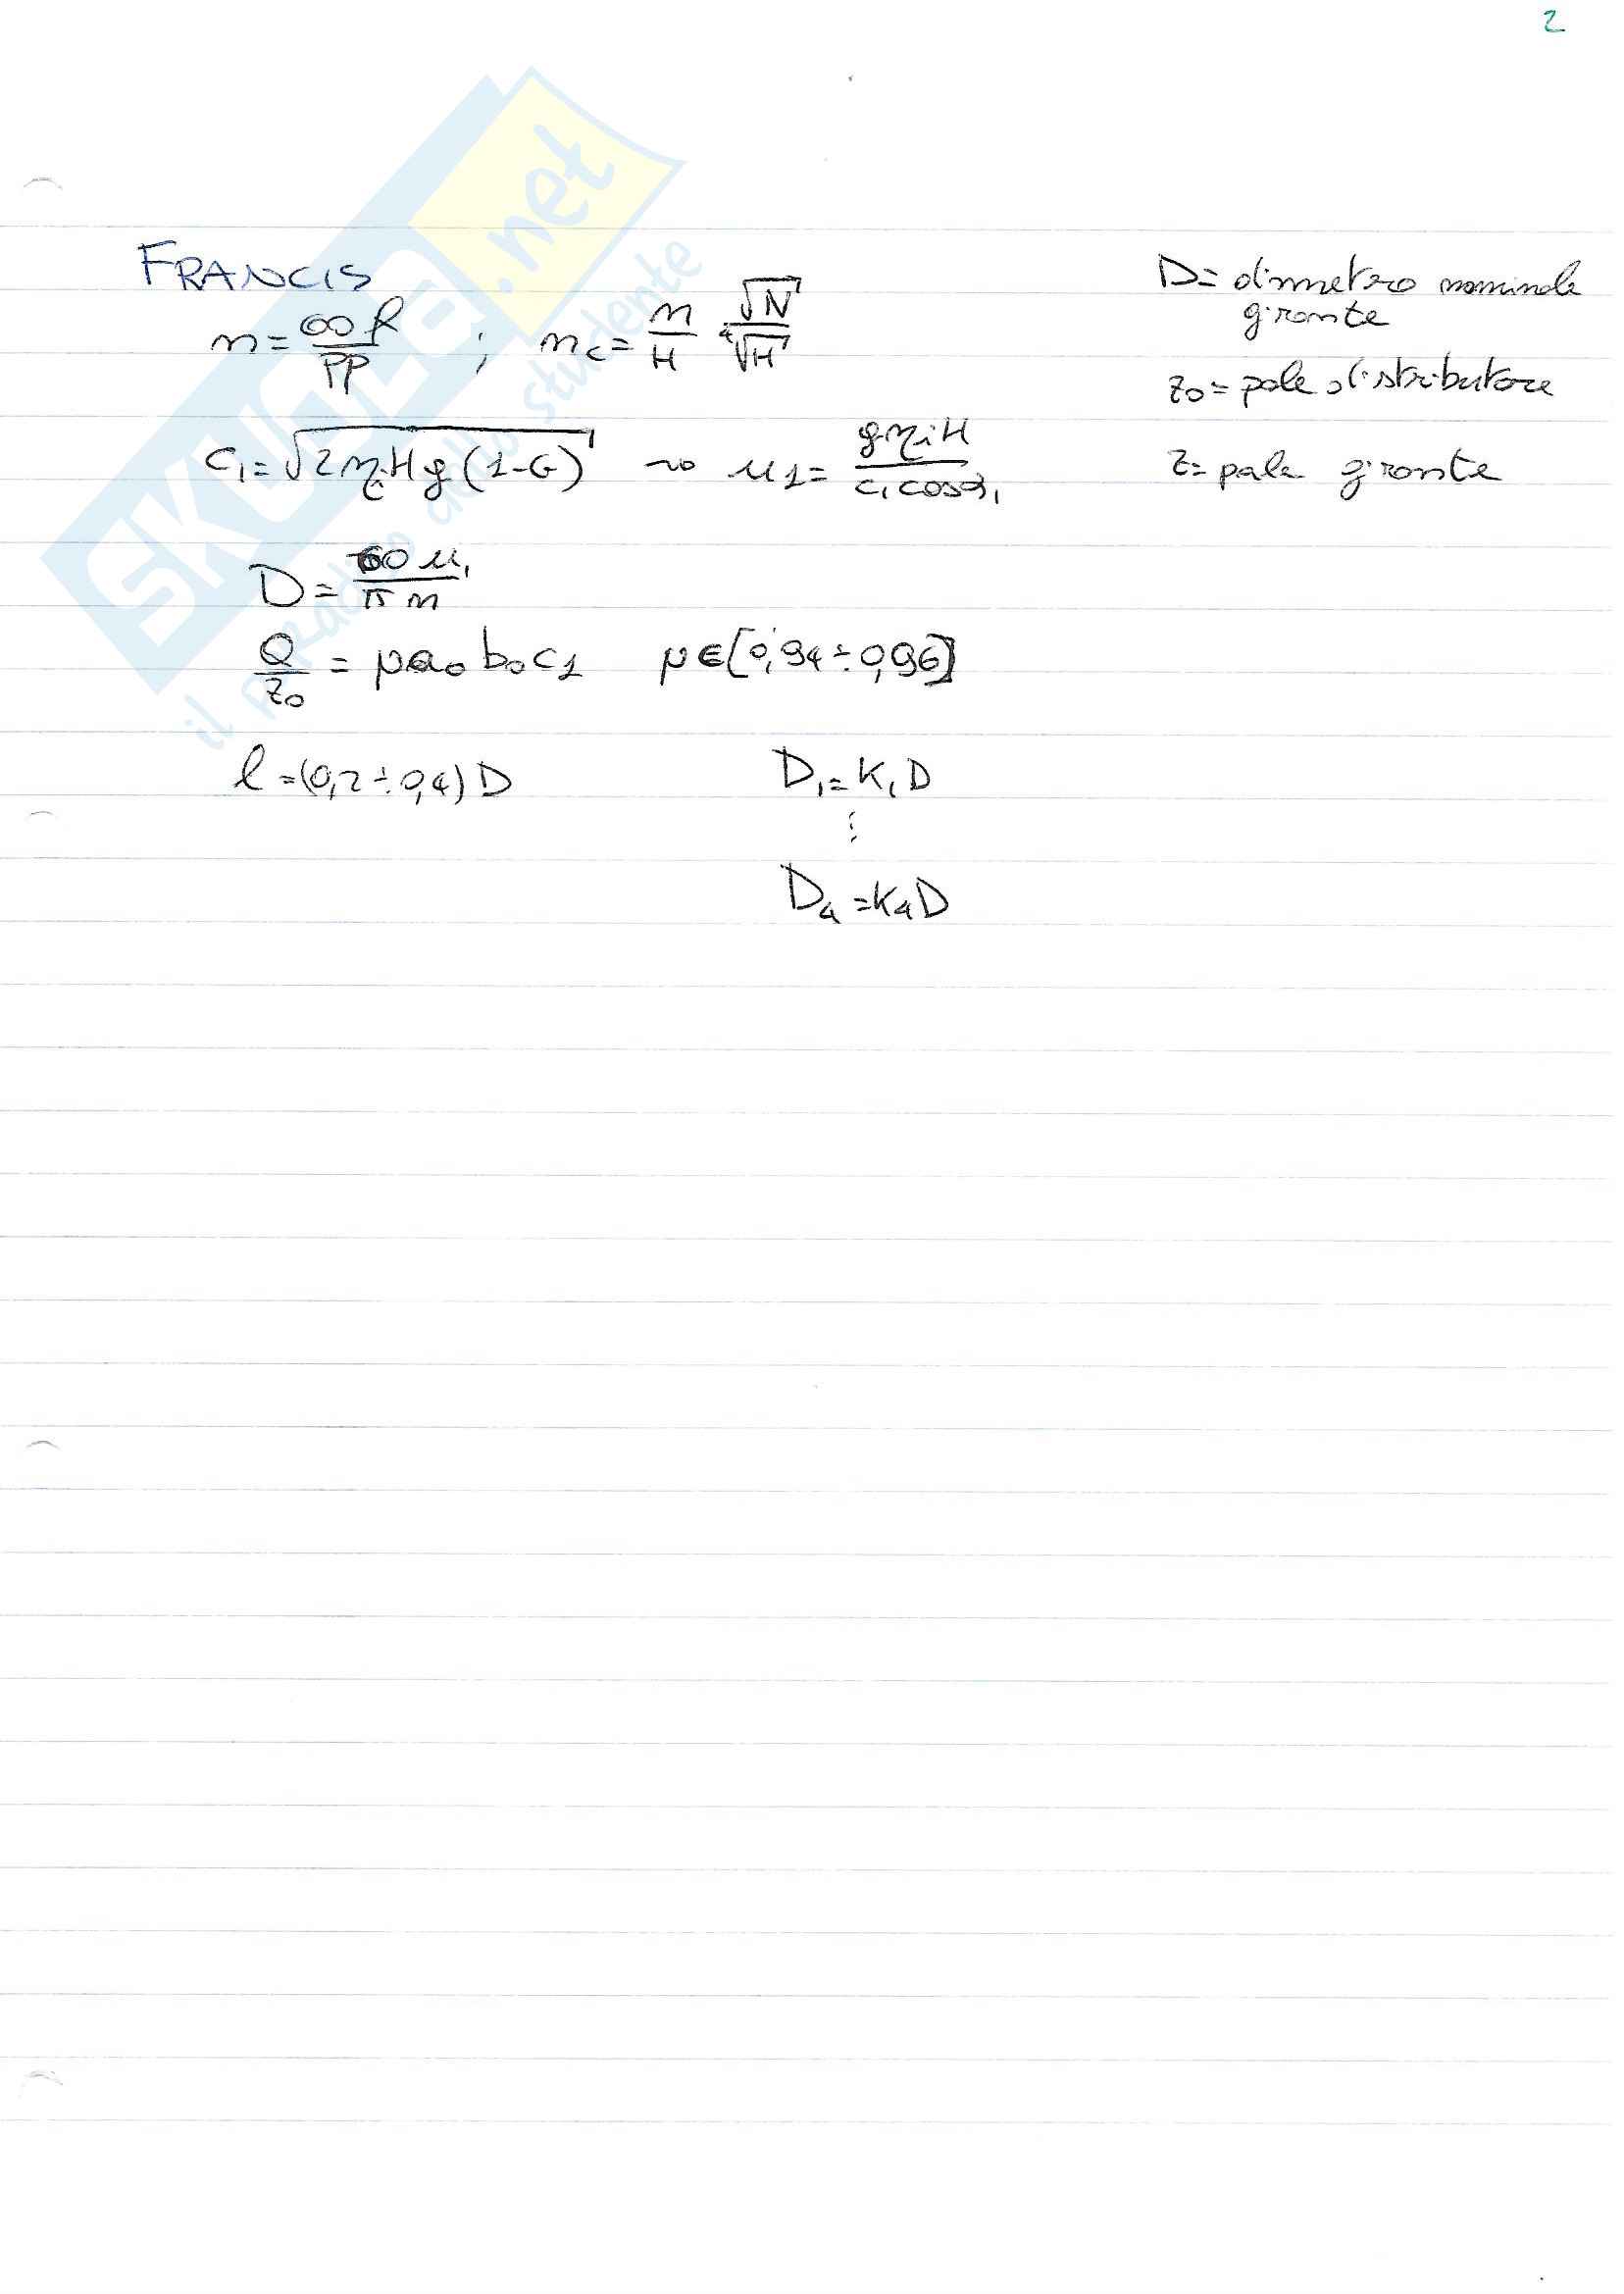 2
FRANCIS
n = 60 f / PP ; n_c = n / H √N / ⁴√H
c₁ = √(2 η_i H g (1-G)) ~> u₁ = g η_i H / c₁ cos α₁
D = 60 u₁ / π n
Q / z₀ = μ a₀ b₀ c₁ μ ∈ [0,94 ÷ 0,96]
l = (0,2 ÷ 0,4) D
D₁ = K₁ D
⋮
D₄ = K₄ D
D = diametro nominale
girante
z₀ = pale distributore
z = pale girante
SKUOLA.net
il paradiso dello studente